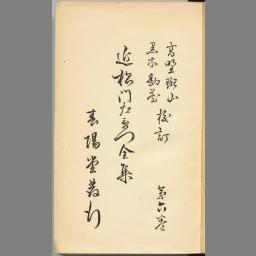 高野斑山
黒木勘蔵
校訂
近松門左衛門全集
第六巻
春陽堂発行